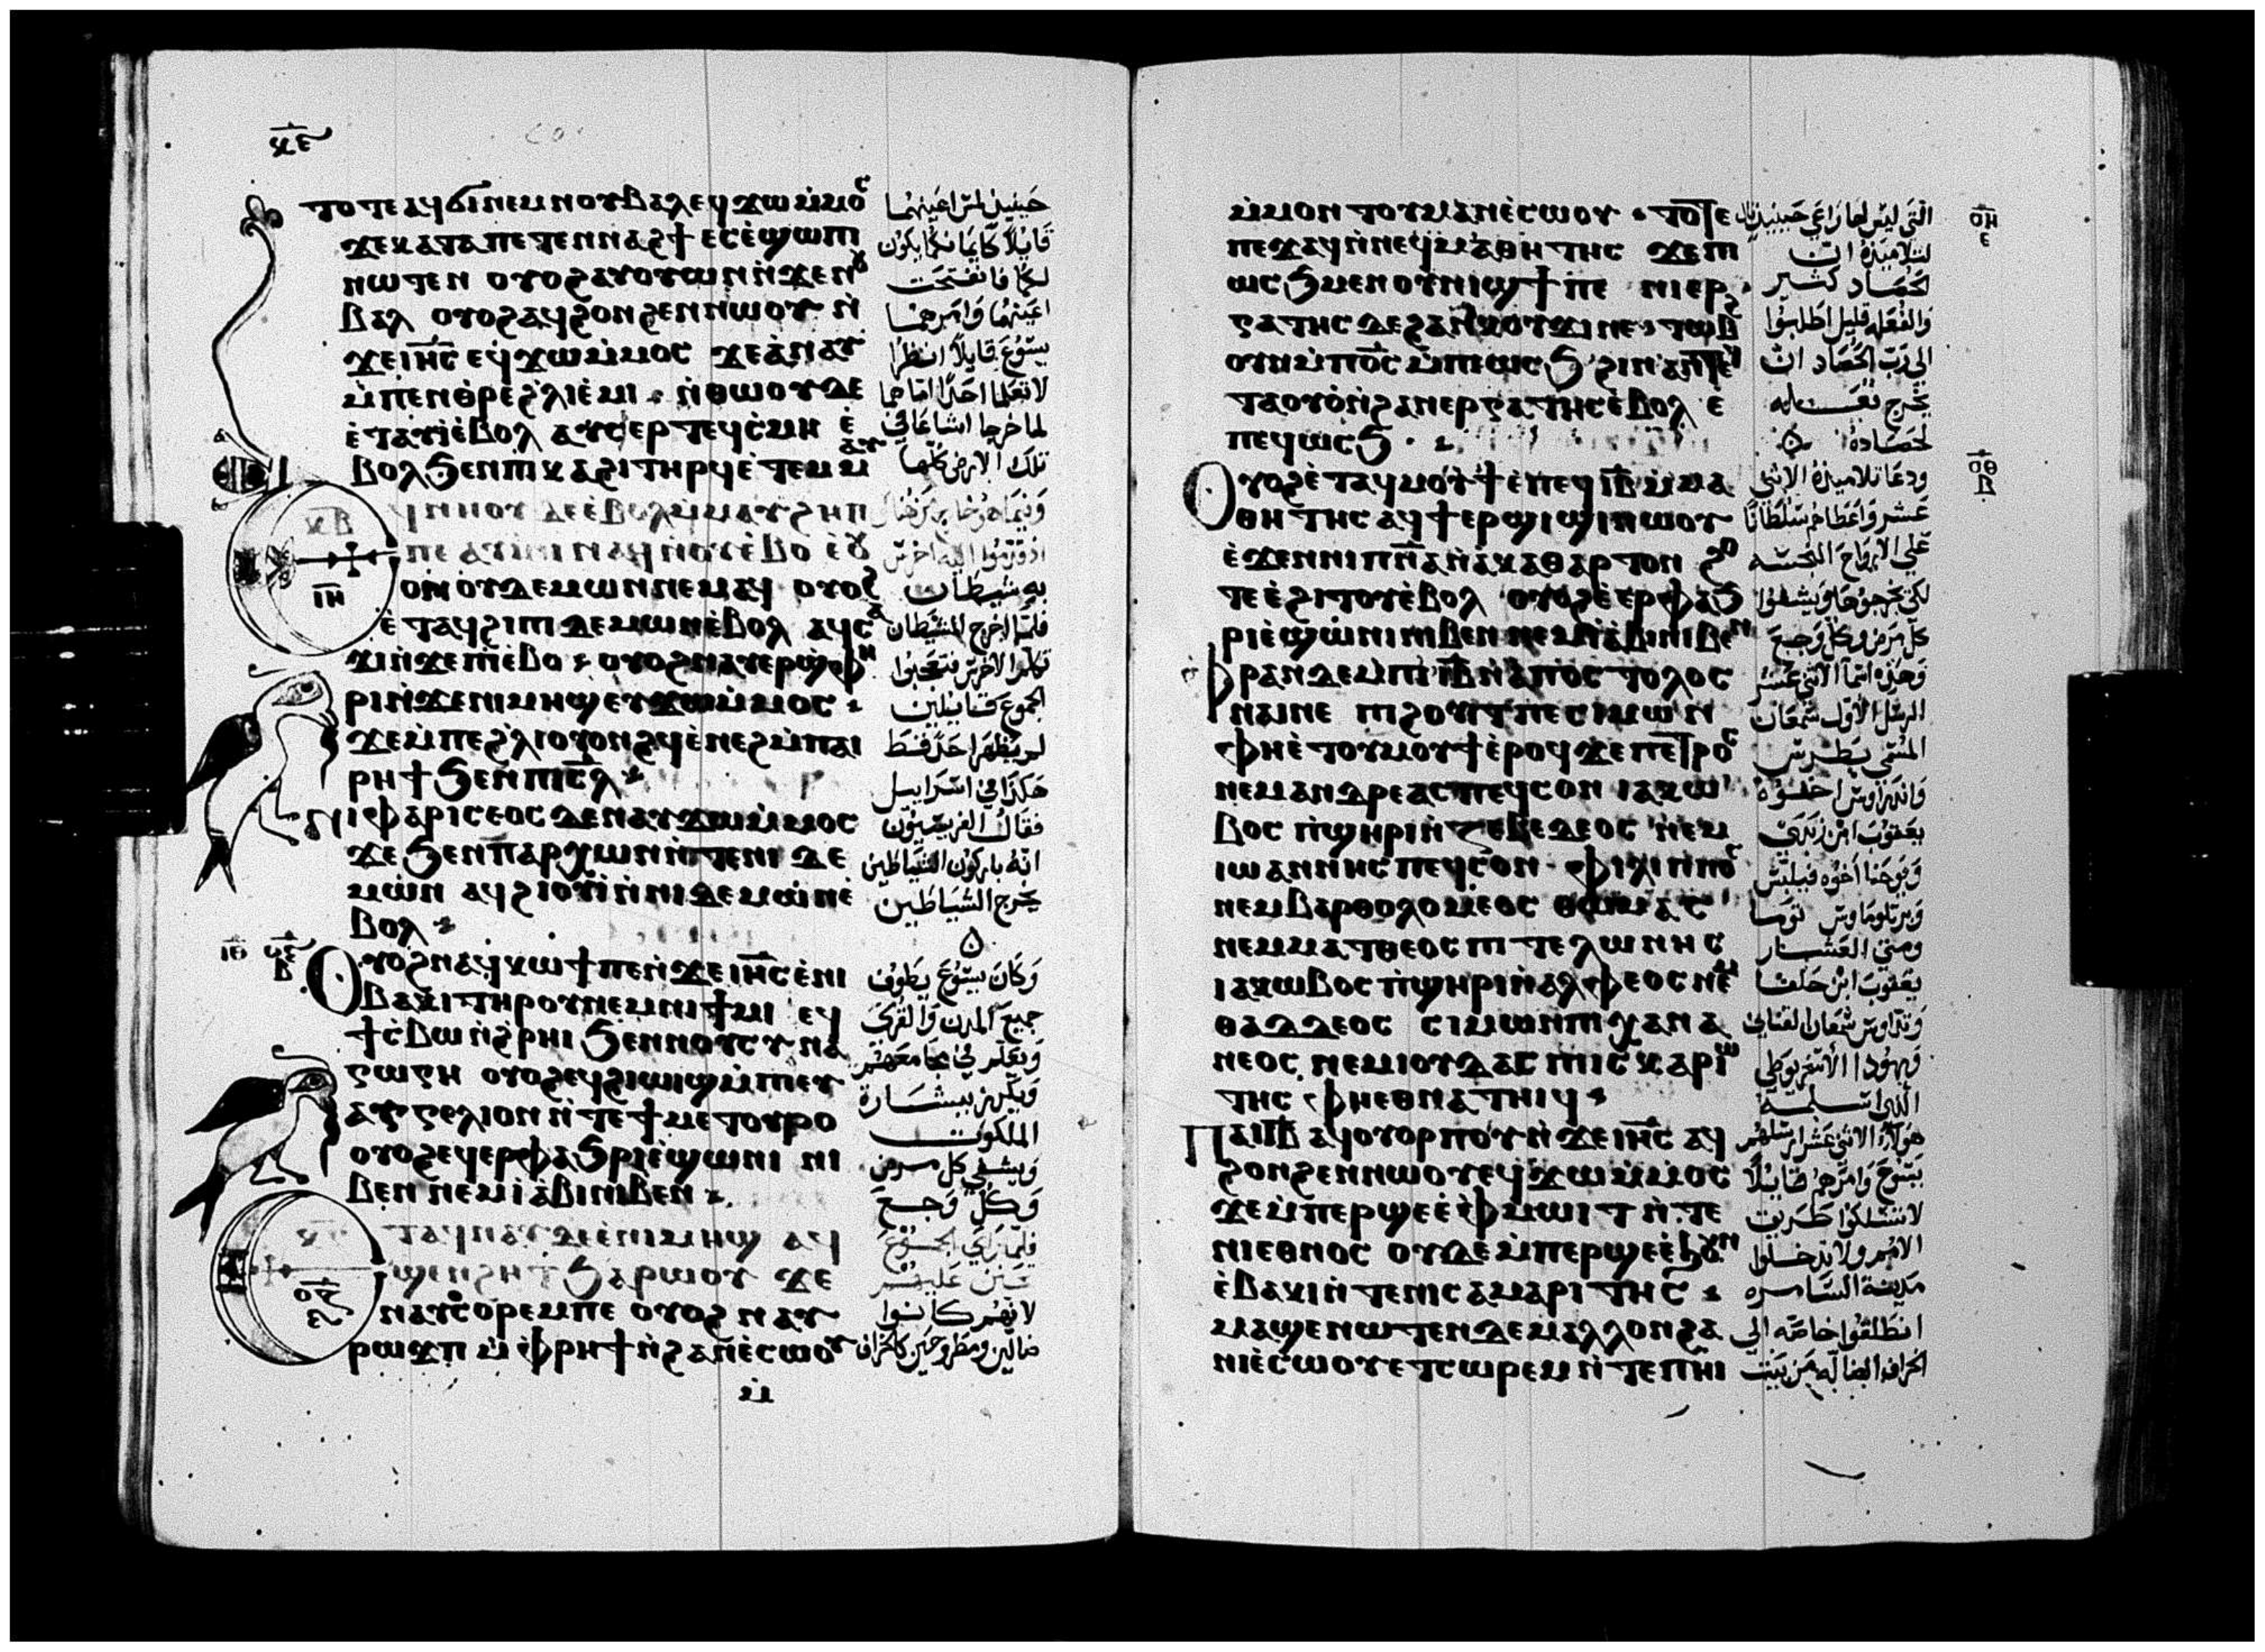 ⲧⲟⲧⲉ ⲁϥϭⲓ ⲛⲉⲙ ⲛⲟⲩⲃⲁⲗ ⲉϥϫⲱ ⲙ̀ⲙⲟⲥ
ϫⲉ ⲕⲁⲧⲁ ⲡⲉⲧⲉⲛⲛⲁϩϯ ⲉⲥⲉ̀ϣⲱⲡⲓ
ⲛⲱⲧⲉⲛ ⲟⲩⲟϩ ⲁⲩⲟⲩⲱⲛ ⲛ̀ϫⲉ ⲛⲟⲩ
ⲃⲁⲗ ⲟⲩⲟϩ ⲁϥϩⲟⲛϩⲉⲛ ⲛⲱⲟⲩ ⲛ̀
ϫⲉ ⲓⲏ̅ⲥ̅ ⲉϥϫⲱ ⲙ̀ⲙⲟⲥ ϫⲉ ⲁ̀ⲛⲁⲩ
ⲙ̀ⲡⲉⲛⲑⲣⲉ ϩ̀ⲗⲓ ⲉ̀ⲙⲓ ⲛ̀ⲑⲱⲟⲩ ⲇⲉ
ⲉ̀ⲧⲁⲩⲓ̀ ⲉ̀ⲃⲟⲗ ⲁⲩⲥⲉⲣ ⲧⲉϥⲥ̀ⲙⲏ ⲉ̀
ⲃⲟⲗ ϧⲉⲛ ⲡⲓⲕⲁϩⲓ ⲧⲏⲣϥ ⲉ̀ⲧⲉⲙⲙⲁⲩ
ⲛⲏⲟⲩ ⲇⲉ ⲉ̀ⲃⲟⲗ ⲙ̀ⲙⲁⲩ ϩⲏⲡ
ⲡⲉ ⲁⲩⲓⲛⲓ ⲛⲁϥ ⲛ̀ⲟⲩⲉ̀ⲃⲟ ⲉ̀ⲟⲩ
ⲟⲛ ⲟⲩⲇⲉⲙⲱⲛ ⲛⲉⲙⲁϥ ⲟⲩⲟϩ
ⲉ̀ⲧⲁϥϩⲓ ⲡⲓⲇⲉⲙⲱⲛ ⲉ̀ⲃⲟⲗ ⲁϥⲥⲁ
ϫⲓ ⲛ̀ϫⲉ ⲡⲓⲉ̀ⲃⲟ ⲟⲩⲟϩ ⲛⲁⲩⲉⲣϣ̀ⲫⲏ
ⲣⲓ ⲛ̀ϫⲉ ⲛⲓⲙⲏϣ ⲉⲩϫⲱ ⲙ̀ⲙⲟⲥ
ϫⲉ ⲙ̀ⲡⲉ ϩ̀ⲗⲓ ⲟⲩⲟⲛϩϥ ⲉ̀ⲛⲉϩ ⲙ̀ⲡⲁⲓ
ⲣⲏϯ ϧⲉⲛ ⲡⲓⲥ̅ⲗ̅
ⲛⲓⲫⲁⲣⲓⲥⲉⲟⲥ ⲇⲉ ⲛⲁⲩϫⲱ ⲙ̀ⲙⲟⲥ
ϫⲉ ϧⲉⲛ ⲡⲁⲣⲭⲱⲛ ⲛ̀ⲧⲉ ⲛⲓⲇⲉ
ⲙⲱⲛ ⲁϥϩⲓⲟⲩⲓ̀ ⲛ̀ⲛⲓⲇⲉⲙⲱⲛ ⲉ̀
ⲃⲟⲗ
ⲟⲩⲟϩ ⲛⲁϥⲕⲱϯ ⲡⲉ ⲛ̀ϫⲉ ⲓⲏ̅ⲥ̅ ⲉ̀ⲛⲓ
ⲃⲁⲕⲓ ⲧⲏⲣⲟⲩ ⲛⲉⲙ ⲛⲓϯⲙⲓ ⲉϥ
ϯⲥ̀ⲃⲱ ⲛ̀ϩ̀ⲣⲏⲓ ϧⲉⲛ ⲛⲟⲩⲥⲩⲛⲁ
ⲅⲱⲅⲏ ⲟⲩⲟϩ ⲉϥϩⲓⲱⲓϣ ⲙ̀ⲡⲓⲉⲩ
ⲁⲅⲅⲉⲗⲓⲟⲛ ⲛ̀ⲧⲉ ϯⲙⲉⲧⲟⲩⲣⲟ
ⲟⲩⲟϩ ⲉϥⲉⲣⲫⲁϧⲣⲓ ⲉ̀ϣⲱⲛⲓ ⲛⲓ
ⲃⲉⲛ ⲛⲉⲙ ⲓⲁⲃⲓ ⲛⲓⲃⲉⲛ
ⲧⲁϥⲛⲁⲩ ⲇⲉ ⲉ̀ⲛⲓⲙⲏϣ ⲁϥ
ϣⲉⲛϩⲏⲧ ϧⲁⲣⲱⲟⲩ ϫⲉ
ⲛⲁⲩⲥⲟⲣⲉⲙ ⲡⲉ ⲟⲩⲟϩ ⲛⲁⲩ
ⲣⲱϫⲡ ⲙ̀ⲫⲣⲏϯ ⲛ̀ϩⲁⲛⲉ̀ⲥⲱⲟⲩ
ⲙ̀
حينيذ لمس اعينهما
قايلا كايمانكما يكون
لكما فانفتحت
اعينهما وامرهما
يسوع قايلا انظرا
لا تعلما احدا اما هما
لما خرجا اشاعا في
تلك الارض كلها
به شيطان
فلما اخرج الشيطان
تكلم الاخرس فتعجبوا
الجموع قايلين
لم يظهر احد قط
هكذا في اسراييل
فقال الفريسيون
انه باركون الشياطين
يخرج الشياطين
وكان يسوع يطوف
جميع المدن والقرى
ويعلم في مجامعهم
ويكرز ببشارة
الملكوت
ويشفي كل مرض
وكل وجع
فلما راي الجموع
تحنن عليهم
لانهم كانوا
ضالين ومطروحين كالخراف
ⲙ̀ⲙⲟⲛ ⲧⲟⲩ ⲙⲁⲛⲉ̀ⲥⲱⲟⲩ ⲧⲟⲧⲉ
ⲡⲉϫⲁϥ ⲛ̀ⲛⲉϥⲙⲁⲑⲏⲧⲏⲥ ϫⲉ ⲡⲓ
ⲱⲥϧ ⲙⲉⲛ ⲟⲩⲛⲓϣϯ ⲡⲉ ⲛⲓⲉⲣ
ⲅⲁⲧⲏⲥ ⲇⲉ ϩⲁⲛⲕⲟⲩϫⲓ ⲛⲉ ⲧⲱⲃϩ
ⲟⲩⲛ ⲙ̀ⲡⲟ̅ⲥ̅ ⲙ̀ⲡⲓⲱⲥϧ ϩⲓⲛⲁ ⲛ̀ⲧⲉϥ
ⲧⲁⲟⲩⲟ̀ ⲛ̀ϩⲁⲛⲉⲣⲅⲁⲧⲏⲥ ⲉ̀ⲃⲟⲗ ⲉ̀
ⲡⲉϥⲱⲥϧ
ⲟⲩⲟϩ ⲉ̀ⲧⲁϥⲙⲟⲩϯ ⲉ̀ⲡⲉϥⲓ̅ⲃ̅ ⲙ̀ⲙⲁ
ⲑⲏⲧⲏⲥ ⲁϥϯⲉⲣϣⲓϣⲓ ⲛⲱⲟⲩ
ⲉ̀ϫⲉⲛ ⲛⲓⲡ̅ⲛ̅ⲁ̅ ⲛ̀ⲁⲕⲁⲑⲁⲣⲧⲟⲛ ϩⲱ
ⲧⲉ ⲉ̀ϩⲓⲧⲟⲩ ⲉ̀ⲃⲟⲗ ⲟⲩⲟϩ ⲉ̀ⲉⲣⲫⲁϧ
ⲣⲓ ⲉ̀ϣⲱⲛⲓ ⲛⲓⲃⲉⲛ ⲛⲉⲙ ⲓⲁⲃⲓ ⲛⲓⲃⲉⲛ
ⲫⲣⲁⲛ ⲇⲉ ⲙ̀ⲡⲓⲓ̅ⲃ̅ ⲛ̀ⲁ̀ⲡⲟⲥⲧⲟⲗⲟⲥ
ⲛⲁⲓ ⲛⲉ ⲡⲓϩⲟⲩⲓⲧ ⲡⲉ ⲥⲓⲙⲱⲛ
ⲫⲏ ⲉ̀ⲧⲟⲩⲙⲟⲩϯ ⲉ̀ⲣⲟϥ ϫⲉ ⲡⲉⲧⲣⲟⲥ
ⲛⲉⲙ ⲁⲛⲇⲣⲉⲁⲥ ⲡⲉϥⲥⲟⲛ ⲓⲁⲕⲱ
ⲃⲟⲥ ⲡ̀ϣⲏⲣⲓ ⲛ̀ⲍⲉⲃⲉⲇⲉⲟⲥ ⲛⲉⲙ
ⲓⲱⲁⲛⲛⲏⲥ ⲡⲉϥⲥⲟⲛ ⲫⲓⲗⲓⲡⲡⲟⲥ
ⲛⲉⲙ ⲃⲁⲣⲑⲟⲗⲟⲙⲉⲟⲥ ⲑⲱⲙⲁⲥ
ⲛⲉⲙ ⲙⲁⲧⲑⲉⲟⲥ ⲡⲓⲧⲉⲗⲱⲛⲏⲥ
ⲓⲁⲕⲱⲃⲟⲥ ⲡ̀ϣⲏⲣⲓ ⲛ̀ⲁⲗⲫⲉⲟⲥ ⲛⲉⲙ
ⲑⲁⲇⲇⲉⲟⲥ ⲥⲓⲙⲱⲛ ⲡⲓⲭⲁⲛⲁ
ⲛⲉⲟⲥ ⲛⲉⲙ ⲓⲟⲩⲇⲁⲥ ⲡⲓⲥⲕⲁⲣⲓⲱ
ⲧⲏⲥ ⲫⲏ ⲉⲑⲛⲁⲧⲏⲓϥ
ⲡⲁⲓⲓ̅ⲃ̅ ⲁϥⲟⲩⲟⲣⲡⲟⲩ ⲛ̀ϫⲉ ⲓⲏ̅ⲥ̅ ⲁϥ
ϩⲟⲛϩⲉⲛ ⲛⲱⲟⲩ ⲉϥϫⲱ ⲙ̀ⲙⲟⲥ
ϫⲉ ⲙ̀ⲡⲉⲣϣⲉ ⲉ̀ⲫⲙⲱⲓⲧ ⲛ̀ⲧⲉ
ⲛⲓⲉⲑⲛⲟⲥ ⲟⲩⲇⲉ ⲙ̀ⲡⲉⲣϣⲉ ⲉ̀ϧⲟⲩⲛ
ⲉ̀ⲃⲁⲕⲓ ⲛ̀ⲧⲉ ⲛⲓⲥⲁⲙⲁⲣⲓⲧⲏⲥ
ⲙⲁϣⲉⲛⲱⲧⲉⲛ ⲇⲉ ⲙⲁⲗⲗⲟⲛ ϩⲁ
ⲛⲓⲉ̀ⲥⲱⲟⲩ ⲉⲧⲥⲱⲣⲉⲙ ⲛ̀ⲧⲉ ⲡⲏⲓ
التي ليس لها راعي حينيذ قال
لتلاميذه ان
الحصاد كثير
والفعله قليل اطلبوا
الي رب الحصاد ان
يخرج فعله
لحصاده
ودعا تلاميذه الاثني
عشر واعطاهم سلطانا
علي الارواح النجسه
لكي يخرجوها ويشفوا
كل مرض وكل وجع
وهذه اسما الاثني عشر
الرسل الاول سمعان
المسمي بطرس
واندراوس اخوه
يعقوب ابن زبدي
ويوحنا اخوه فيلبس
وبرتلوماوس توما
ومتي العشار
يعقوب ابن حلفا
وتداوس سمعان القناني
ويهودا الاسخريوطي
الذي اسلمه
هولاء الاثني عشر ارسلهم
يسوع وامرهم قايلا
لا تسلكوا طريق
الامم ولا تدخلوا
مدينة السامره
انطلقوا خاصه الي
الخراف الضاله من بيت